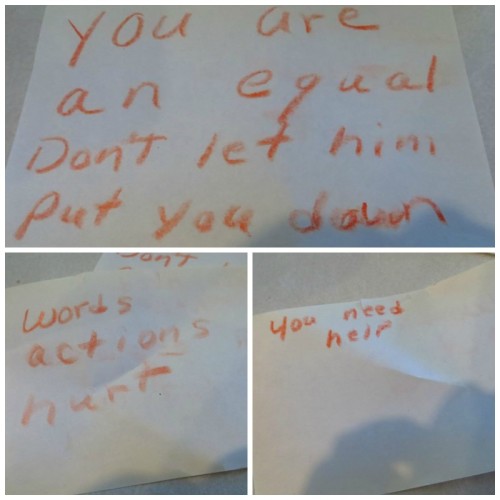 you are
an equal
Don't let him
put you down
Don't
words
actions
hurt
you need
help